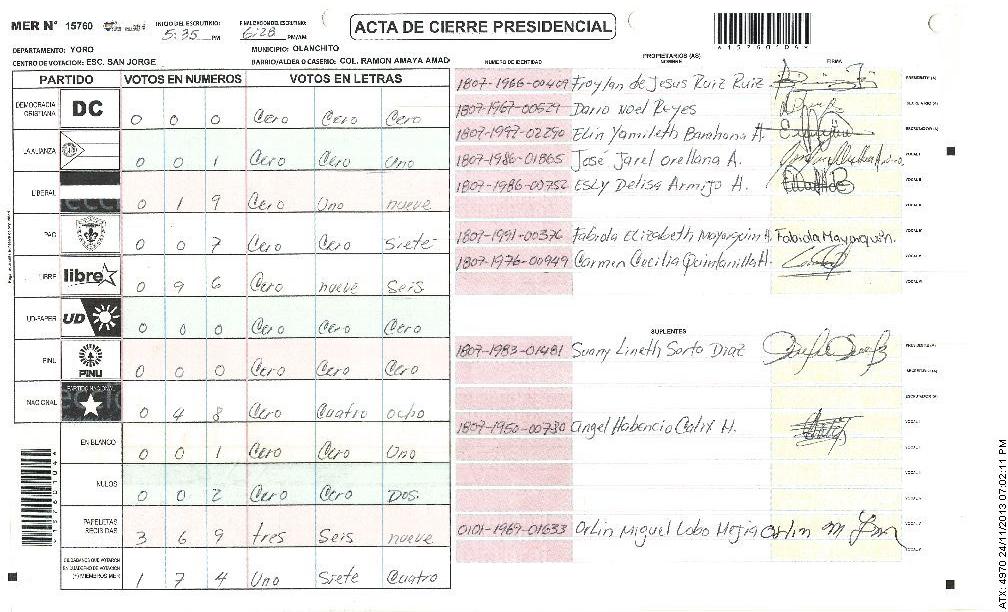 MER N° 15760
INICIO DEL ESCRUTINIO: 5:35 PM
FINALIZACION DEL ESCRUTINIO: 6:28 PM/AM
ACTA DE CIERRE PRESIDENCIAL
DEPARTAMENTO: YORO
MUNICIPIO: OLANCHITO
CENTRO DE VOTACION: ESC. SAN JORGE
BARRIO/ALDEA O CASERIO: COL. RAMON AMAYA AMAD
PARTIDO VOTOS EN NUMEROS VOTOS EN LETRAS
DEMOCRACIA CRISTIANA DC 0 0 0 Cero Cero Cero
LA ALIANZA 0 0 1 Cero Cero Uno
LIBERAL 0 1 9 Cero Uno nueve
PAC 0 0 7 Cero Cero Siete
LIBRE libre 0 9 6 Cero nueve Seis
UD-FAPER UD 0 0 0 Cero Cero Cero
PINU PINU 0 0 0 Cero Cero Cero
NACIONAL PARTIDO NACIONAL 0 4 8 Cero Cuatro ocho
EN BLANCO 0 0 1 Cero Cero Uno
NULOS 0 0 2 Cero Cero Dos.
PAPELETAS RECIBIDAS 3 6 9 tres Seis nueve
CIUDADANOS QUE VOTARON EN CUADERNO DE VOTACION (+) MIEMBROS MER 1 7 4 Uno Siete Cuatro
NUMERO DE IDENTIDAD PROPIETARIOS (AS) NOMBRE FIRMA
1807-1966-00409 Froylan de Jesus Ruiz Ruiz PRESIDENTE (A)
1807-1967-00529 Dario Noel Reyes SECRETARIO (A)
1807-1997-02290 Elin Yamileth Barahona H. ESCRUTADOR (A)
1807-1986-01865 José Jarel Orellana A. VOCAL I
1807-1986-00752 Esly Delisa Armijo H. VOCAL II
1807-1991-00376 Fabiola Elizabeth Mayorquin H. Fabiola Mayorquin.
1807-1976-00949 Carmen Cecilia Quintanilla H.
SUPLENTES
1807-1983-01481 Suany Lineth Sorto Diaz PRESIDENTE (A)
SECRETARIO (A)
ESCRUTADOR (A)
1807-1950-00730 angel Habencio Calix H. VOCAL I
0101-1969-01633 Orlin Miguel Lobo Mejia Orlin M
ATX: 4970 24/11/2013 07:02:11 PM